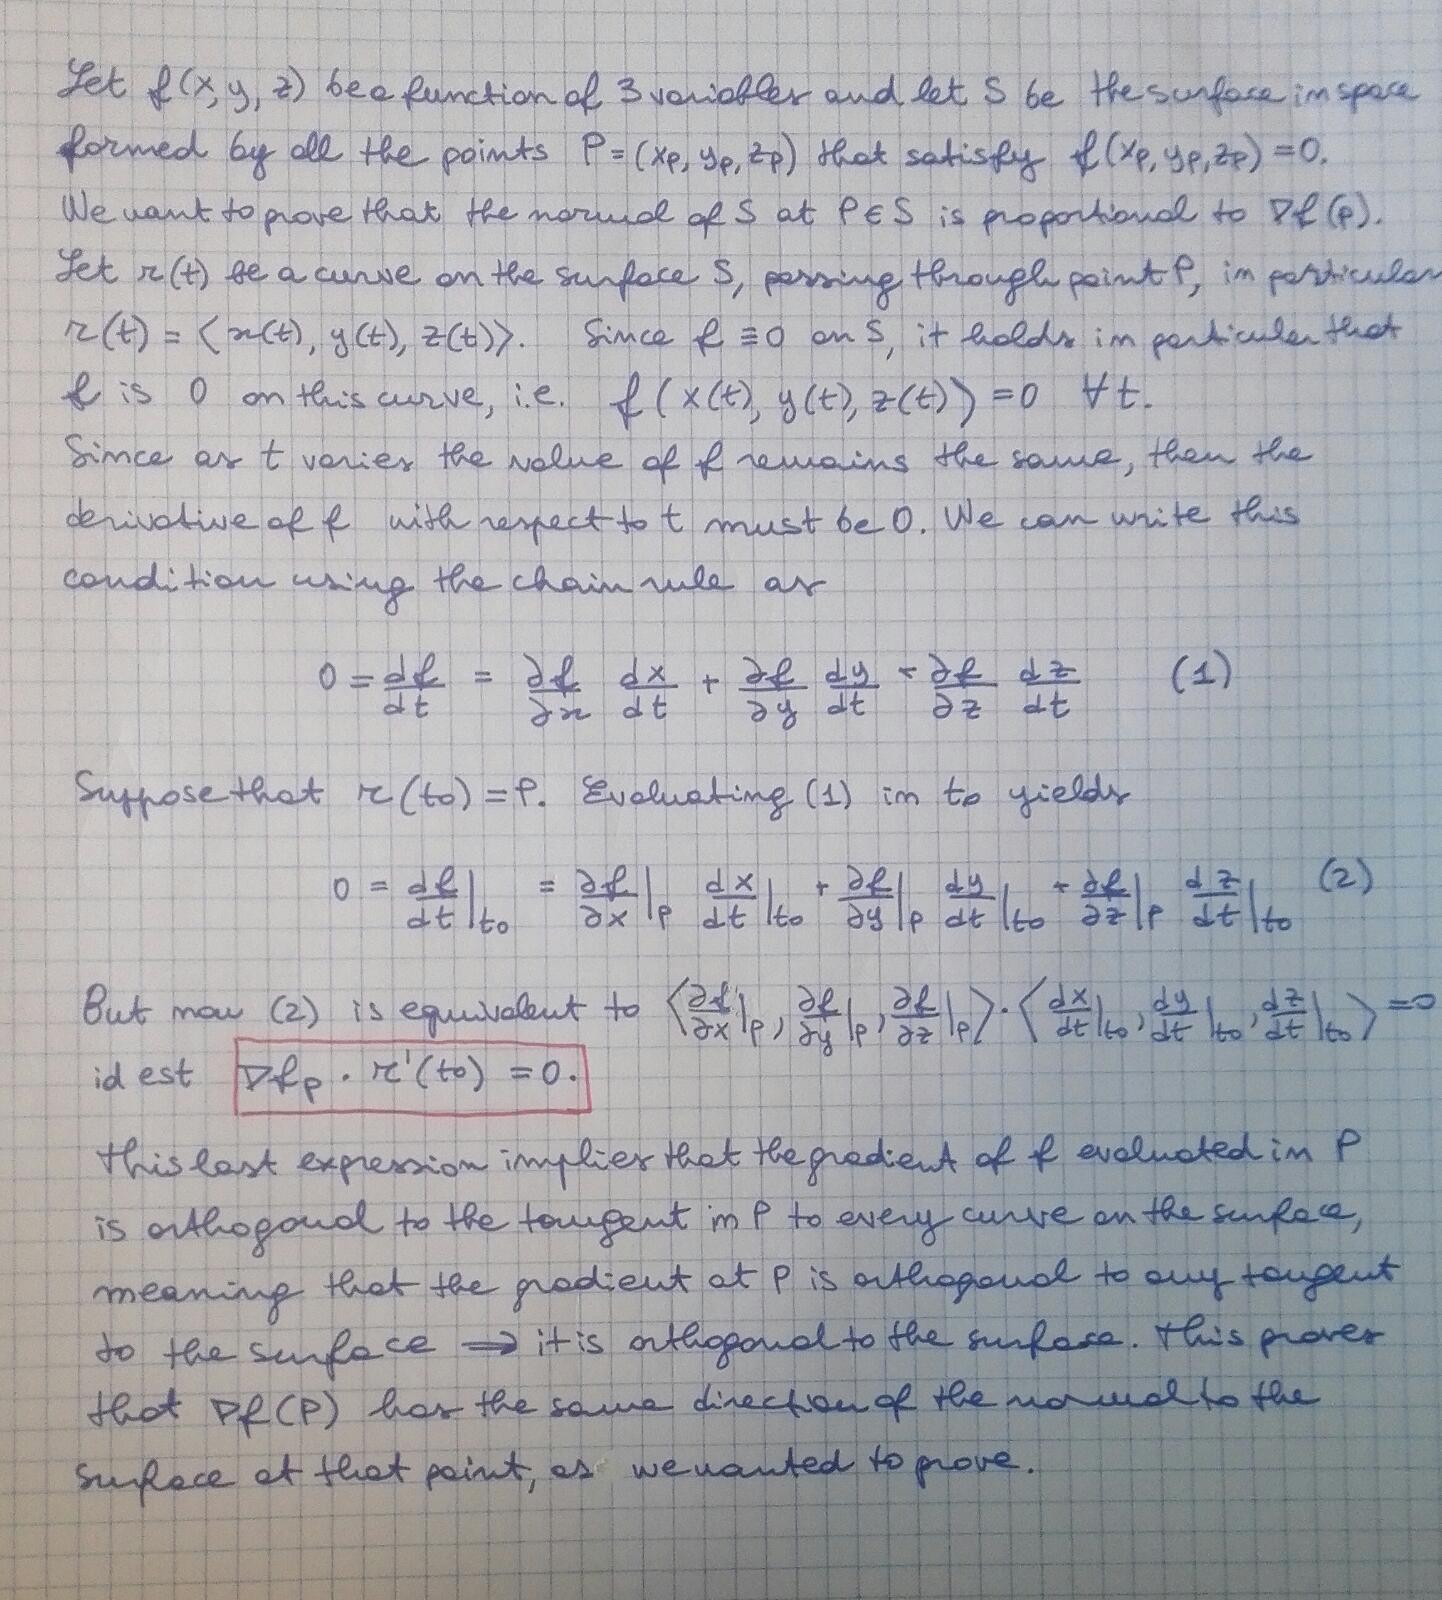 Let f(x, y, z) be a function of 3 variables and let S be the surface in space
formed by all the points P = (xₚ, yₚ, zₚ) that satisfy f(xₚ, yₚ, zₚ) = 0.
We want to prove that the normal of S at P ∈ S is proportional to ∇f(P).
Let r(t) be a curve on the surface S, passing through point P, in particular
r(t) = ⟨x(t), y(t), z(t)⟩. Since f ≡ 0 on S, it holds in particular that
f is 0 on this curve, i.e. f(x(t), y(t), z(t)) = 0 ∀t.
Since as t varies the value of f remains the same, then the
derivative of f with respect to t must be 0. We can write this
condition using the chain rule as
0 = df/dt = ∂f/∂x dx/dt + ∂f/∂y dy/dt + ∂f/∂z dz/dt (1)
Suppose that r(t₀) = P. Evaluating (1) in t₀ yields
0 = df/dt|t₀ = ∂f/∂x|P dx/dt|t₀ + ∂f/∂y|P dy/dt|t₀ + ∂f/∂z|P dz/dt|t₀ (2)
But now (2) is equivalent to ⟨∂f/∂x|P, ∂f/∂y|P, ∂f/∂z|P⟩ · ⟨dx/dt|t₀, dy/dt|t₀, dz/dt|t₀⟩ = 0
id est ∇fₚ · r'(t₀) = 0.
This last expression implies that the gradient of f evaluated in P
is orthogonal to the tangent in P to every curve on the surface,
meaning that the gradient at P is orthogonal to any tangent
to the surface ⇒ it is orthogonal to the surface. This proves
that ∇f(P) has the same direction of the normal to the
surface at that point, as we wanted to prove.